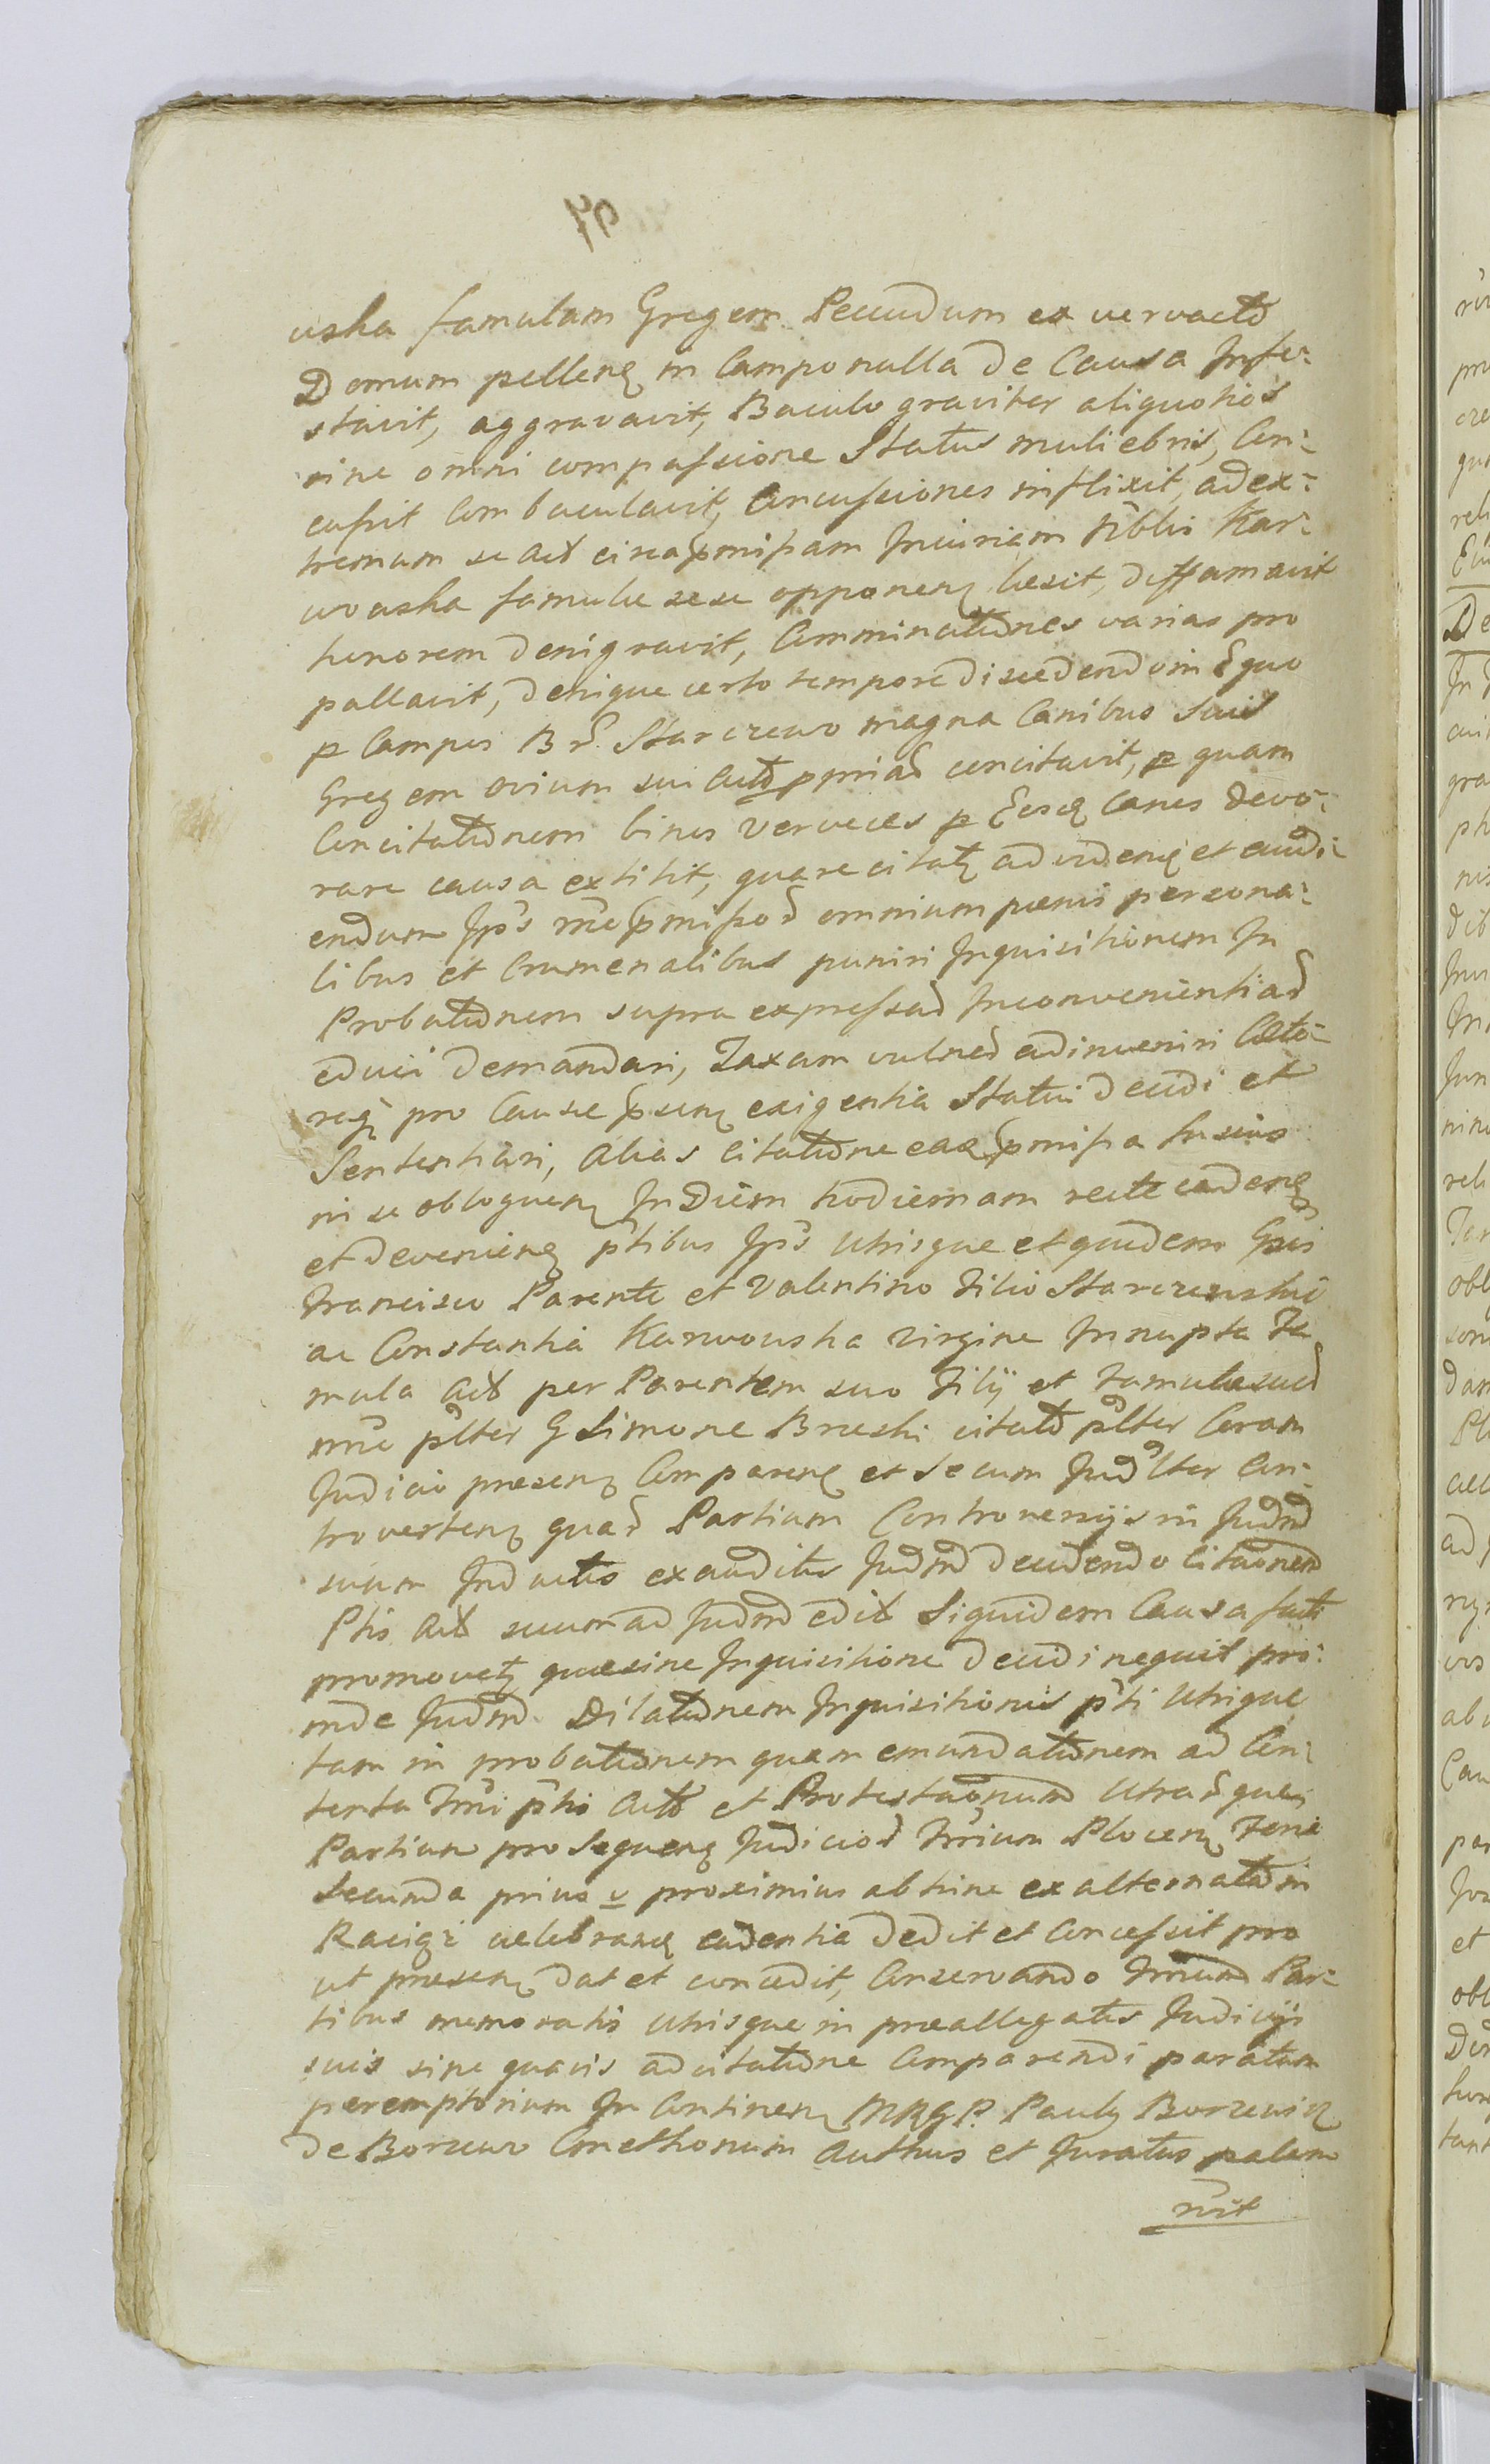 97
uska famulam Gregem Pecudum ex vervacto
Domum pellenς in Campo nulla de Causa Infe-
stavit, aggravavit, Baculo graviter aliquoties
sine omni compassione Status muliebris, Con-
cussit Combaculavit, Concussiones inflixit, ad ex-
tremum se act circa pmissam Iniuriam siblis Kar-
wouska famulae sese opponenς laesit, diffamavit
honorem denigravit, Comminationes varias pro
pallavit, denique certo tempore discedendo in Equo
p Campos Br. Starczewo magna Canibus suis
Gregem ovium sui Act concitavit, p quam
Concitationem binos Verveces p Eosς Canes devo-
rare causa extitit, quare citatς ad videnς et audi-
endum Ips rne pmissor omnium poenis persona-
libus et Crumenalibus puniri Inquisitionem In
Probationem supra expressar Inconvenientiar
educi demandari, Taxam vulner adinveniri Caeto-
roς pro Causae psenς exigentia Statui decidi et
Sententiari, Alias Citatione eaς pmissa fusius
in se obloquenς In Diem hodiernam recte cadenς
et devenienς ptibus Ips Utrisque et quidem Gsis
Francisco Parente et Valentino Filio Starczewskie
ac Constantia Karwouska Virgine Innupta Fa
mula Act per Parentem suo Filij et Famulae suae
rnne plter G Simone Brzeski citato plter Coram
Judicio praesenς Comparenς et secum Judlter Con-
trovertenς quar Partium Controversijs in Judm
suum Inductis exauditis Judm decidendo Citaonem
Ptis Act suum ad Judm edit Siquidem Causa facti
promovetς quae sine Inquisitione decidi nequit pro-
inde Judm Dilationem Inquisitionis pti Utrique
tam in probationem quam emundationem ad Con-
tenta Trni ptis Act et Protestaonum Utrarque
Partium pro Sequenς Judicior Trrium Plocenς Feria
Secunda prius v proximius abhinc ex alternata in
Raciąż celebranς cadentia dedit et Concessit pro
ut praesenς dat et concedit, Conservando Trnum Par-
tibus memoratis Utrisque in praeallegatis Judicijs
suis sine quavis adcitatione Comparendi paratum
peremptorium In Continenς MRGP. Paulς Borzewicz
de Borzewo Cmethonum Authus et Juratus palam
rvit